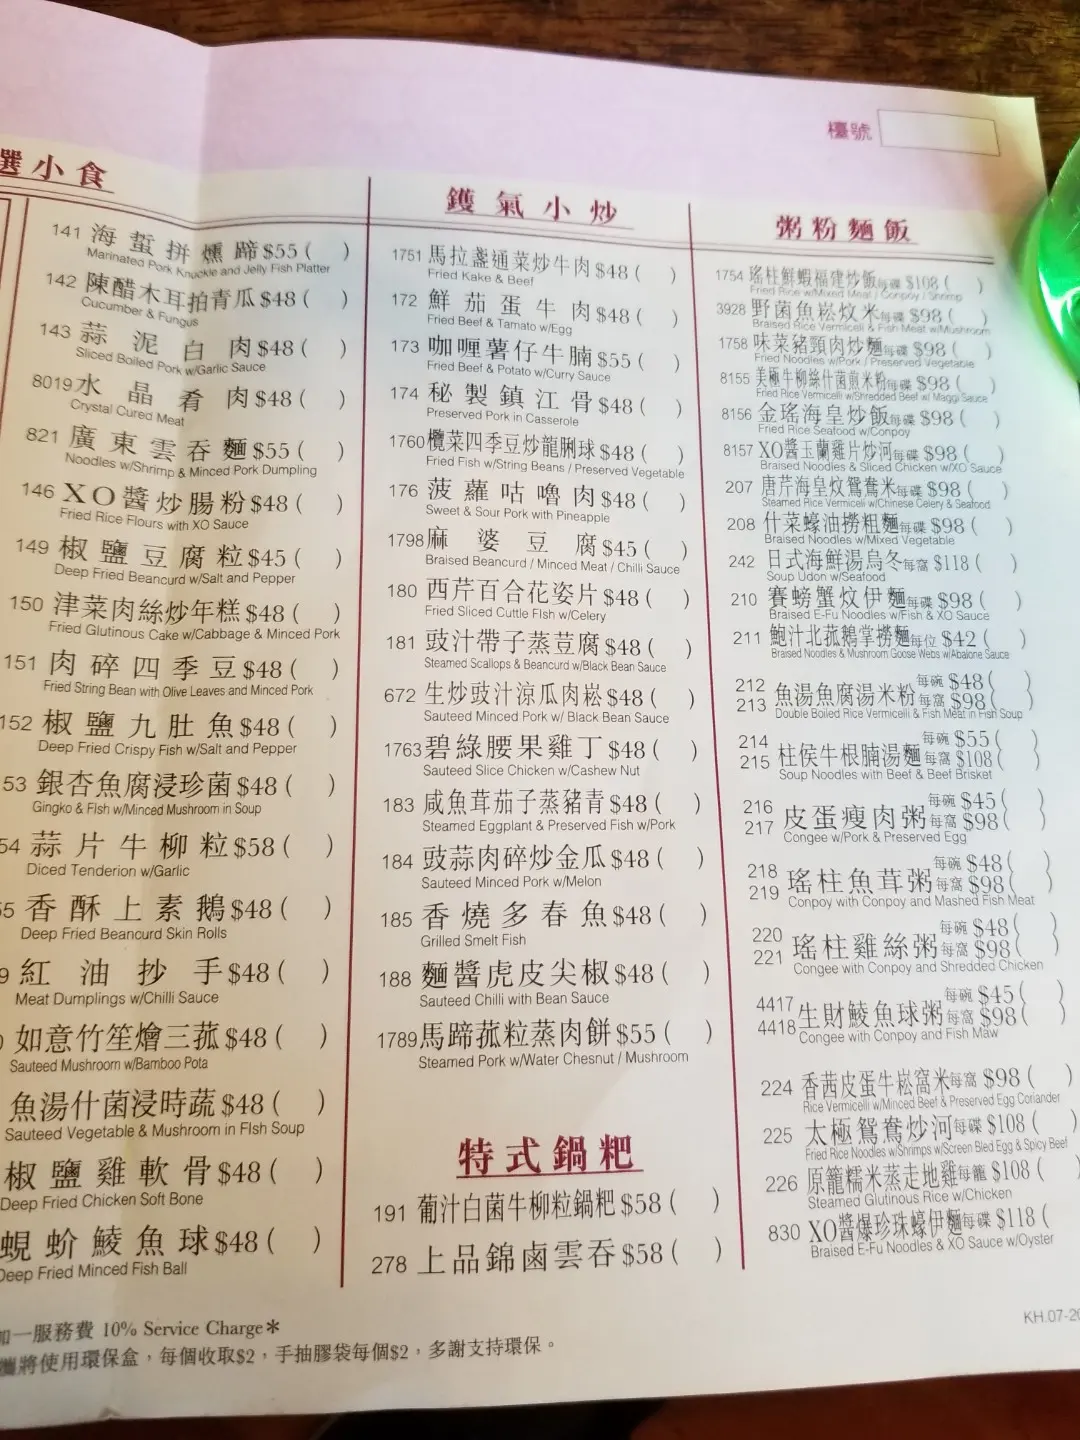 檯號
選小食
141 海蜇拼燻蹄$55( )
Marinated Pork Knuckle and Jelly Fish Platter
142 陳醋木耳拍青瓜$48( )
Cucumber & Fungus
143 蒜泥白肉$48( )
Sliced Boiled Pork w/Garlic Sauce
8019水晶肴肉$48( )
Crystal Cured Meat
821 廣東雲吞麵$55( )
Noodles w/Shrimp & Minced Pork Dumpling
146 XO醬炒腸粉$48( )
Fried Rice Flours with XO Sauce
149 椒鹽豆腐粒$45( )
Deep Fried Beancurd w/Salt and Pepper
150 津菜肉絲炒年糕$48( )
Fried Glutinous Cake w/Cabbage & Minced Pork
151 肉碎四季豆$48( )
Fried String Bean with Olive Leaves and Minced Pork
152 椒鹽九肚魚$48( )
Deep Fried Crispy Fish w/Salt and Pepper
53 銀杏魚腐浸珍菌$48( )
Gingko & Fish w/Minced Mushroom in Soup
54 蒜片牛柳粒$58( )
Diced Tenderion w/Garlic
55 香酥上素鵝$48( )
Deep Fried Beancurd Skin Rolls
9 紅油抄手$48( )
Meat Dumplings w/Chilli Sauce
如意竹笙燴三菰$48( )
Sauteed Mushroom w/Bamboo Pota
魚湯什菌浸時蔬$48( )
Sauteed Vegetable & Mushroom in FIsh Soup
椒鹽雞軟骨$48( )
Deep Fried Chicken Soft Bone
蜆蚧鯪魚球$48( )
Deep Fried Minced Fish Ball
鑊氣小炒
1751馬拉盞通菜炒牛肉$48( )
Fried Kake & Beef
172 鮮茄蛋牛肉$48( )
Fried Beef & Tamato w/Egg
173 咖喱薯仔牛腩$55( )
Fried Beef & Potato w/Curry Sauce
174 秘製鎮江骨$48( )
Preserved Pork in Casserole
1760欖菜四季豆炒龍脷球$48( )
Fried Fish w/String Beans / Preserved Vegetable
176 菠蘿咕嚕肉$48( )
Sweet & Sour Pork with Pineapple
1798麻婆豆腐$45( )
Braised Beancurd / Minced Meat / Chilli Sauce
180 西芹百合花姿片$48( )
Fried Sliced Cuttle Fish w/Celery
181 豉汁帶子蒸荳腐$48( )
Steamed Scallops & Beancurd w/Black Bean Sauce
672 生炒豉汁涼瓜肉崧$48( )
Sauteed Minced Pork w/ Black Bean Sauce
1763碧綠腰果雞丁$48( )
Sauteed Slice Chicken w/Cashew Nut
183 咸魚茸茄子蒸豬青$48( )
Steamed Eggplant & Preserved Fish w/Pork
184 豉蒜肉碎炒金瓜$48( )
Sauteed Minced Pork w/Melon
185 香燒多春魚$48( )
Grilled Smelt Fish
188 麵醬虎皮尖椒$48( )
Sauteed Chilli with Bean Sauce
1789馬蹄菰粒蒸肉餅$55( )
Steamed Pork w/Water Chesnut / Mushroom
特式鍋粑
191 葡汁白菌牛柳粒鍋粑$58( )
278 上品錦鹵雲吞$58( )
粥粉麵飯
1754瑤柱鮮蝦福建炒飯每碟$108( )
Fried Rice w/Mixed Meat / Conpoy / Shrimp
3928野菌魚崧炆米每碟$98( )
Braised Rice Vermiceli & Fish Meat w/Mushroom
1758 味菜豬頸肉炒麵每碟$98( )
Fried Noodles w/Pork / Preserved Vegetable
8155 美極牛柳絲什菌煎米粉每碟$98( )
Fried Rice Vermicelli w/Shredded Beef w/ Maggi Sauce
8156 金瑤海皇炒飯每碟$98( )
Fried Rice Seafood w/Conpoy
8157 XO醬玉蘭雞片炒河每碟$98( )
Braised Noodles & Sliced Chicken w/XO Sauce
207 唐芹海皇炆鴛鴦米每碟$98( )
Steamed Rice Vermiceli w/Chinese Celery & Seafood
208 什菜蠔油撈粗麵每碟$98( )
Braised Noodles w/Mixed Vegetable
242 日式海鮮湯烏冬每窩$118( )
Soup Udon w/Seafood
210 賽螃蟹炆伊麵每碟$98( )
Braised E-Fu Noodles w/Fish & XO Sauce
211 鮑汁北菰鵝掌撈麵每位$42( )
Braised Noodles & Mushroom Goose Webs w/Abalone Sauce
212 每碗$48( )
213 魚湯魚腐湯米粉每窩$98( )
Double Boiled Rice Vermicelli & Fish Meat in Fish Soup
214 每碗$55( )
215 柱侯牛根腩湯麵每窩$108( )
Soup Noodles with Beef & Beef Brisket
216 每碗$45( )
217 皮蛋瘦肉粥每窩$98( )
Congee w/Pork & Preserved Egg
218 每碗$48( )
219 瑤柱魚茸粥每窩$98( )
Conpoy with Conpoy and Mashed Fish Meat
220 每碗$48( )
221 瑤柱雞絲粥每窩$98( )
Congee with Conpoy and Shredded Chicken
4417 每碗$45( )
4418生財鯪魚球粥每窩$98( )
Congee with Conpoy and Fish Maw
224 香茜皮蛋牛崧窩米每窩$98( )
Rice Vermicelli w/Minced Beef & Preserved Egg Coriander
225 太極鴛鴦炒河每碟$108( )
Fried Rice Noodles w/Shrimps w/Screen Bled Egg & Spicy Beef
226 原籠糯米蒸走地雞每籠$108( )
Steamed Glutinous Rice w/Chicken
830 XO醬爆珍珠蠔伊麵每碟$118(
Braised E-Fu Noodles & XO Sauce w/Oyster
加一服務費 10% Service Charge*
將使用環保盒，每個收取$2，手抽膠袋每個$2，多謝支持環保。
KH.07-20